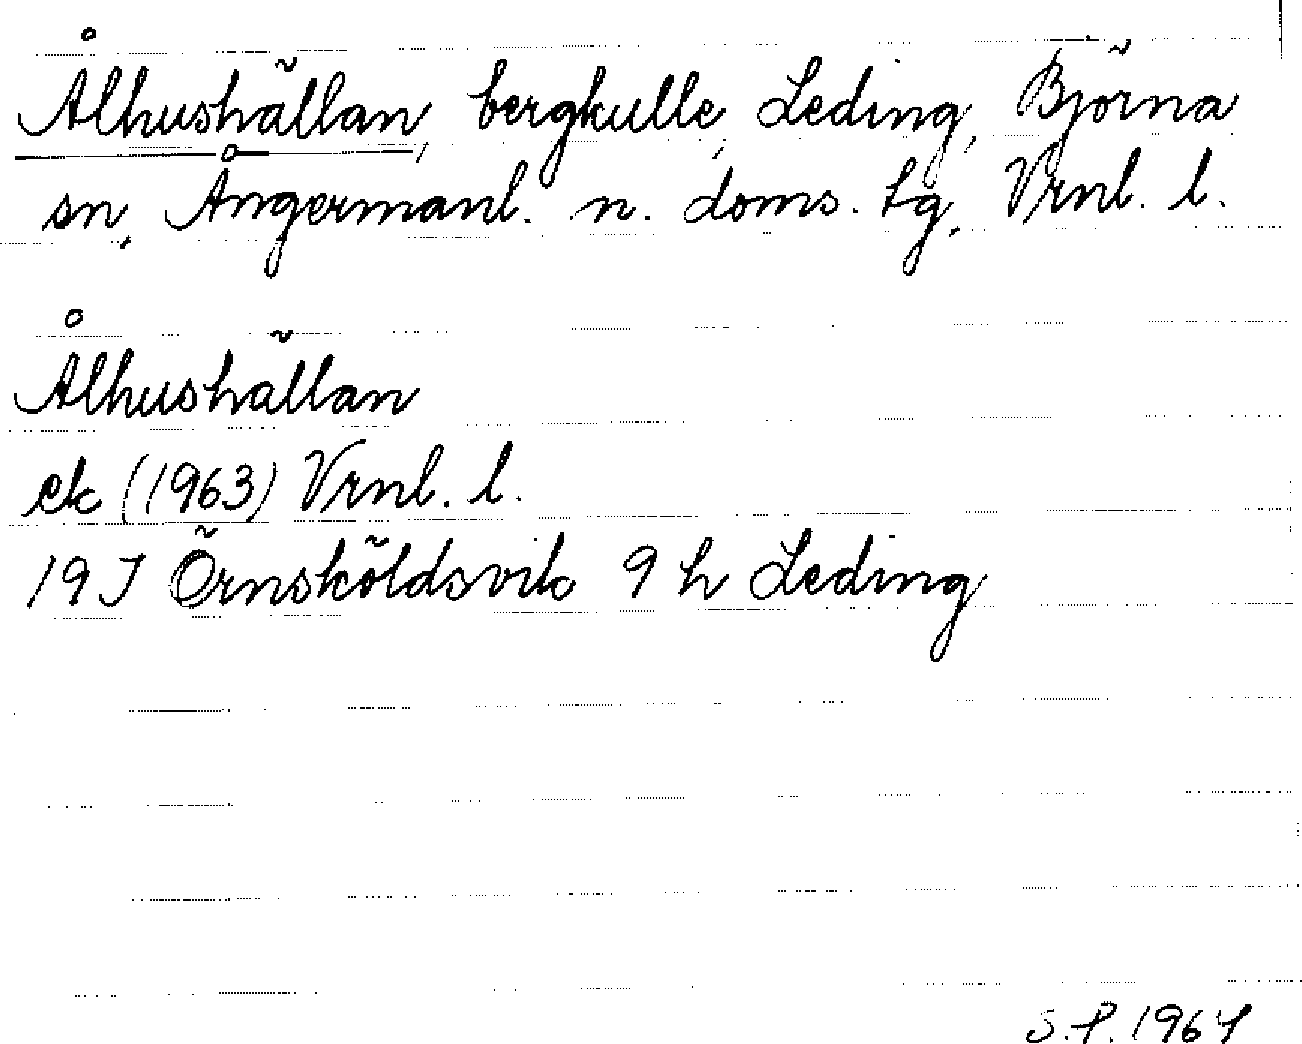 Ålhushällan, bergkulle, Leding, Björna
sn, Ångermanl. n. doms. tg, Vrnl. l.
Ålhushällan
ek (1963) Vrnl. l.
19J Örnsköldsvik 9 h Leding
S.P. 1964